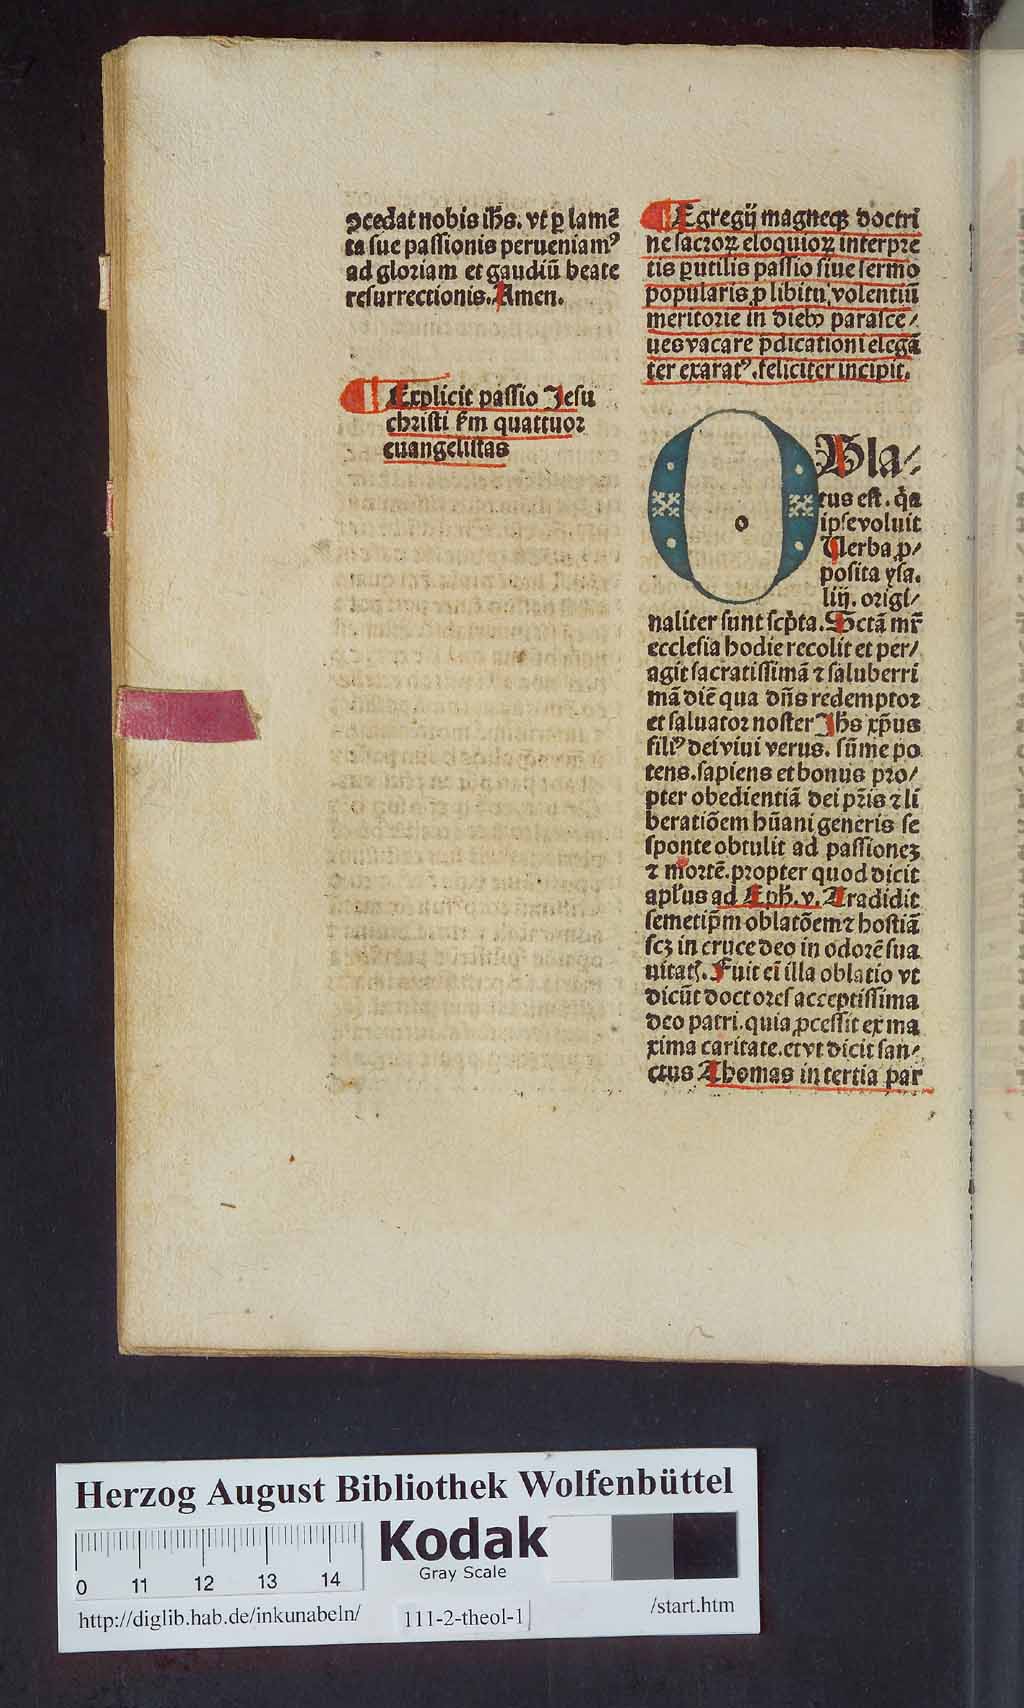 ꝯcedat nobis ihs̄. vt ꝑ lamē
ta sue passionis perueniamꝰ
ad gloriam et gaudiū beate
resurrectionis. Amen.
Explicit passio Jesu
christi ẜm quattuor
euangelistas
Egregij magneqꝫ doctri
ne sacroꝝ eloquioꝝ interpre
tis ꝑutilis passio siue sermo
popularis ꝓ libitu volentiū
meritorie in diebꝰ parasce⸗
ues vacare p̄dicationi elegā
ter exaratꝰ. feliciter incipit.
o
OBla⸗
tus est. q̇a
ipse voluit
Verba ꝓ⸗
posita ysa.
liij. origi⸗
naliter sunt scp̄ta. Sctā mr̄
ecclesia hodie recolit et per⸗
agit sacratissimā ⁊ saluberri
mā diē qua dn̄s redemptor
et saluator noster Jhs xp̄us
filiꝰ dei viui verus. sūme po
tens. sapiens et bonus pro⸗
pter obedientiā dei pr̄is ⁊ li
beratiōem hūani generis se
sponte obtulit ad passioneꝫ
⁊ mortē. propter quod dicit
apl̄us ad Eph. v. Tradidit
semetip̄m oblatōem ⁊ hostiā
scꝫ in cruce deo in odorē sua
uitatꝭ. Fuit eī illa oblatio vt
dicūt doctores acceptissima
deo patri. quia ꝓcessit ex ma
xima caritate. et vt dicit san⸗
ctus Thomas in tertia par
Herzog August Bibliothek Wolfenbüttel
Kodak
Gray Scale
0 11 12 13 14
http://diglib.hab.de/inkunabeln/ 111-2-theol-1 /start.htm